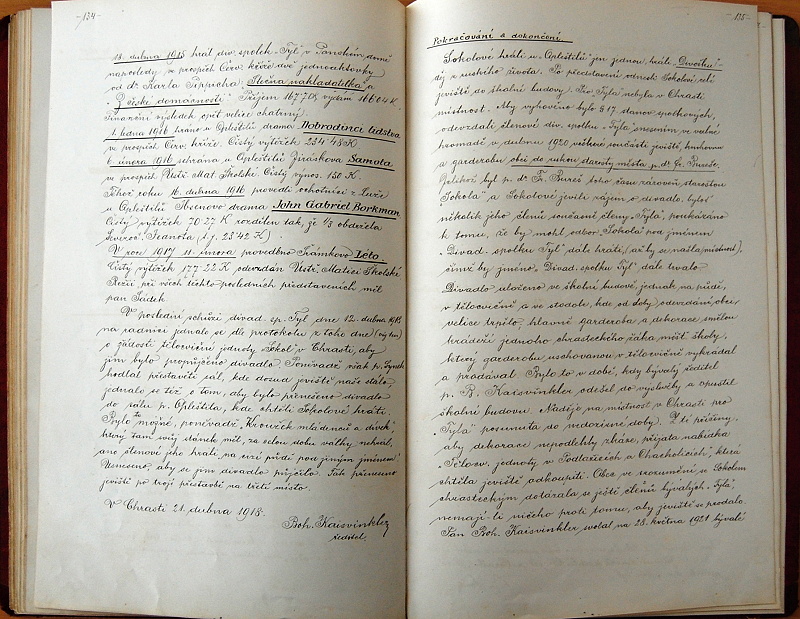 -134-
18. dubna 1915 hrál div. spolek „Tyl" v Panském domě
naposledy ve prospěch Červ. kříže dvě jednoaktovky
od dr. Karla Pippicha: Slečna nakladatelka a
„Z české domácnosti". Příjem 167·70 K, výdaje 166·04 K.
Finanční výsledek opět velice chatrný.
1. ledna 1916 hráno u Opleštilů drama Dobrodinci lidstva
ve prospěch Červ. kříže. Čistý výtěžek 234·48 K
6. února 1916 sehrána u Opleštilů Jiráskova Samota
ve prospěch Ústř. Mat. Školské. Čistý výnos 150 K.
Téhož roku 16. dubna 1916 provedli ochotníci z Luže
u Opleštilů Ibsenovo drama John Gabriel Borkman
Čistý výtěžek 70·27 K rozdělen tak, že 1/3 obdržela
Severoč. Jednota (t. j. 23·42 K)
V roce 1917 11. února provedeno Šrámkovo Léto.
Čistý výtěžek 177·28 K odevzdán Ústř. Matici Školské
Režii při všech těchto posledních představeních měl
pan Sádek
V poslední schůzi divad. sp. Tyl dne 12. dubna 1918
na radnici jednalo se dle protokolu z toho dne
o žádosti tělocvičné jednoty „Sokol" v Chrasti, aby
jim bylo propůjčeno divadlo. Poněvadž však p.
hodlal přestavěti sál, kde dosud jeviště naše stálo,
jednalo se též o tom, aby bylo přeneseno divadlo
do sálu p. Opleštila, kde chtěli Sokolové hráti.
Bylo to možné, poněvadž „Kroužek mládenců a dívek",
který tam svůj stánek měl, za celou dobu války nehrál,
ano členové jeho hráli na vrzí půdě pod jiným jménem
Usneseno, aby se jim divadlo půjčilo. Tak přeneseno
jeviště po trojí přestavbě na třetí místo.
V Chrasti 21. dubna 1918.
Boh. Kaisvinkler
ředitel.
-135-
Pokračování a dokončení.
Sokolové hráli u „Opleštilů" jen jednou, hráli „Divočku"-
děj z ruského života. Po představení odnesli Sokolové celé
jeviště do školní budovy. Pro Tyla nebyla v Chrasti
místnost. Aby vyhověno bylo § 17 stanov spolkových,
odevzdali členové div. spolku „Tyla" usnesením ve valné
hromadě v dubnu 1920 veškeré součásti jeviště, knihovnu
a garderobu obci do rukou starosty města p. dr. Fr. Bureše.
Jelikož byl p. dr. Fr. Bureš toho času zároveň starostou
„Sokola" a Sokolové jevili zájem o divadlo, byloť
několik jeho členů současně členy „Tyla", poukázáno
k tomu, že by mohl odbor „Sokola" pod jménem
„Divad. spolku Tyl" dále hráti, (až by se našla místnost),
čímž by jméno „Divad. spolku Tyl" dále trvalo
Divadlo uloženo ve školní budově, jednak na půdě,
v tělocvičně a ve stodole, kde od doby odevzdání obci
velice trpělo, hlavně garderoba a dekorace smělou
krádeží jednoho chrasteckého žáka měšť. školy,
který garderobu uschovanou v tělocvičně vykrádal
a prodával. Bylo to v době, kdy bývalý ředitel
p. B. Kaisvinkler odešel do výslužby a opustil
školní budovu. Naděje na místnost v Chrasti pro
„Tyla" posunuta do nedozírné doby. Z té příčiny,
aby dekorace nepodlehly zkáze, přijata nabídka
„Tělocv. jednoty v Podlažicích a Chacholicích", která
chtěla jeviště odkoupiti. Obec ve srozumění se Sokolem
chrasteckým dotázala se ještě členů bývalých „Tyla",
nemají-li ničeho proti tomu, aby jeviště se prodalo.
Pan Boh. Kaisvinkler svolal na 28. května 1921 bývalé